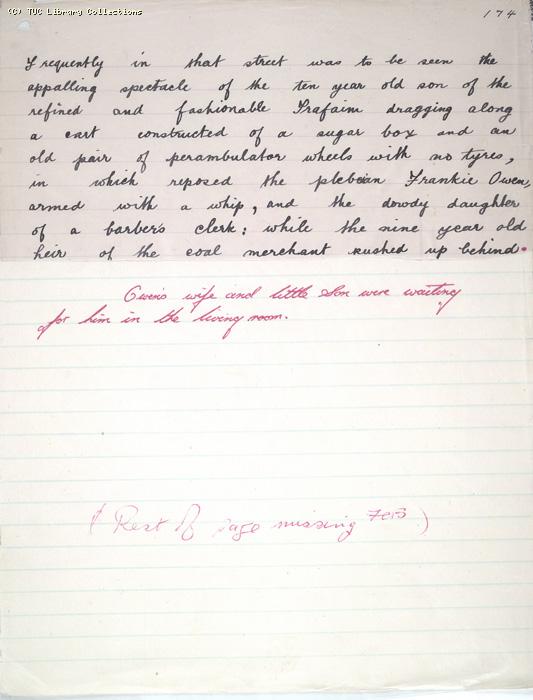 (C) TUC Library Collections
174
Frequently in that street was to be seen the
appalling spectacle of the ten year old son of the
refined and fashionable Trafaim dragging along
a cart constructed of a sugar box and an
old pair of perambulator wheels with no tyres,
in which reposed the plebian Frankie Owen,
armed with a whip, and the dowdy daughter
of a barber's clerk: while the nine year old
heir of the coal merchant rushed up behind.
Owen's wife and little Son were waiting
for him in the living room.
(Rest of page missing)